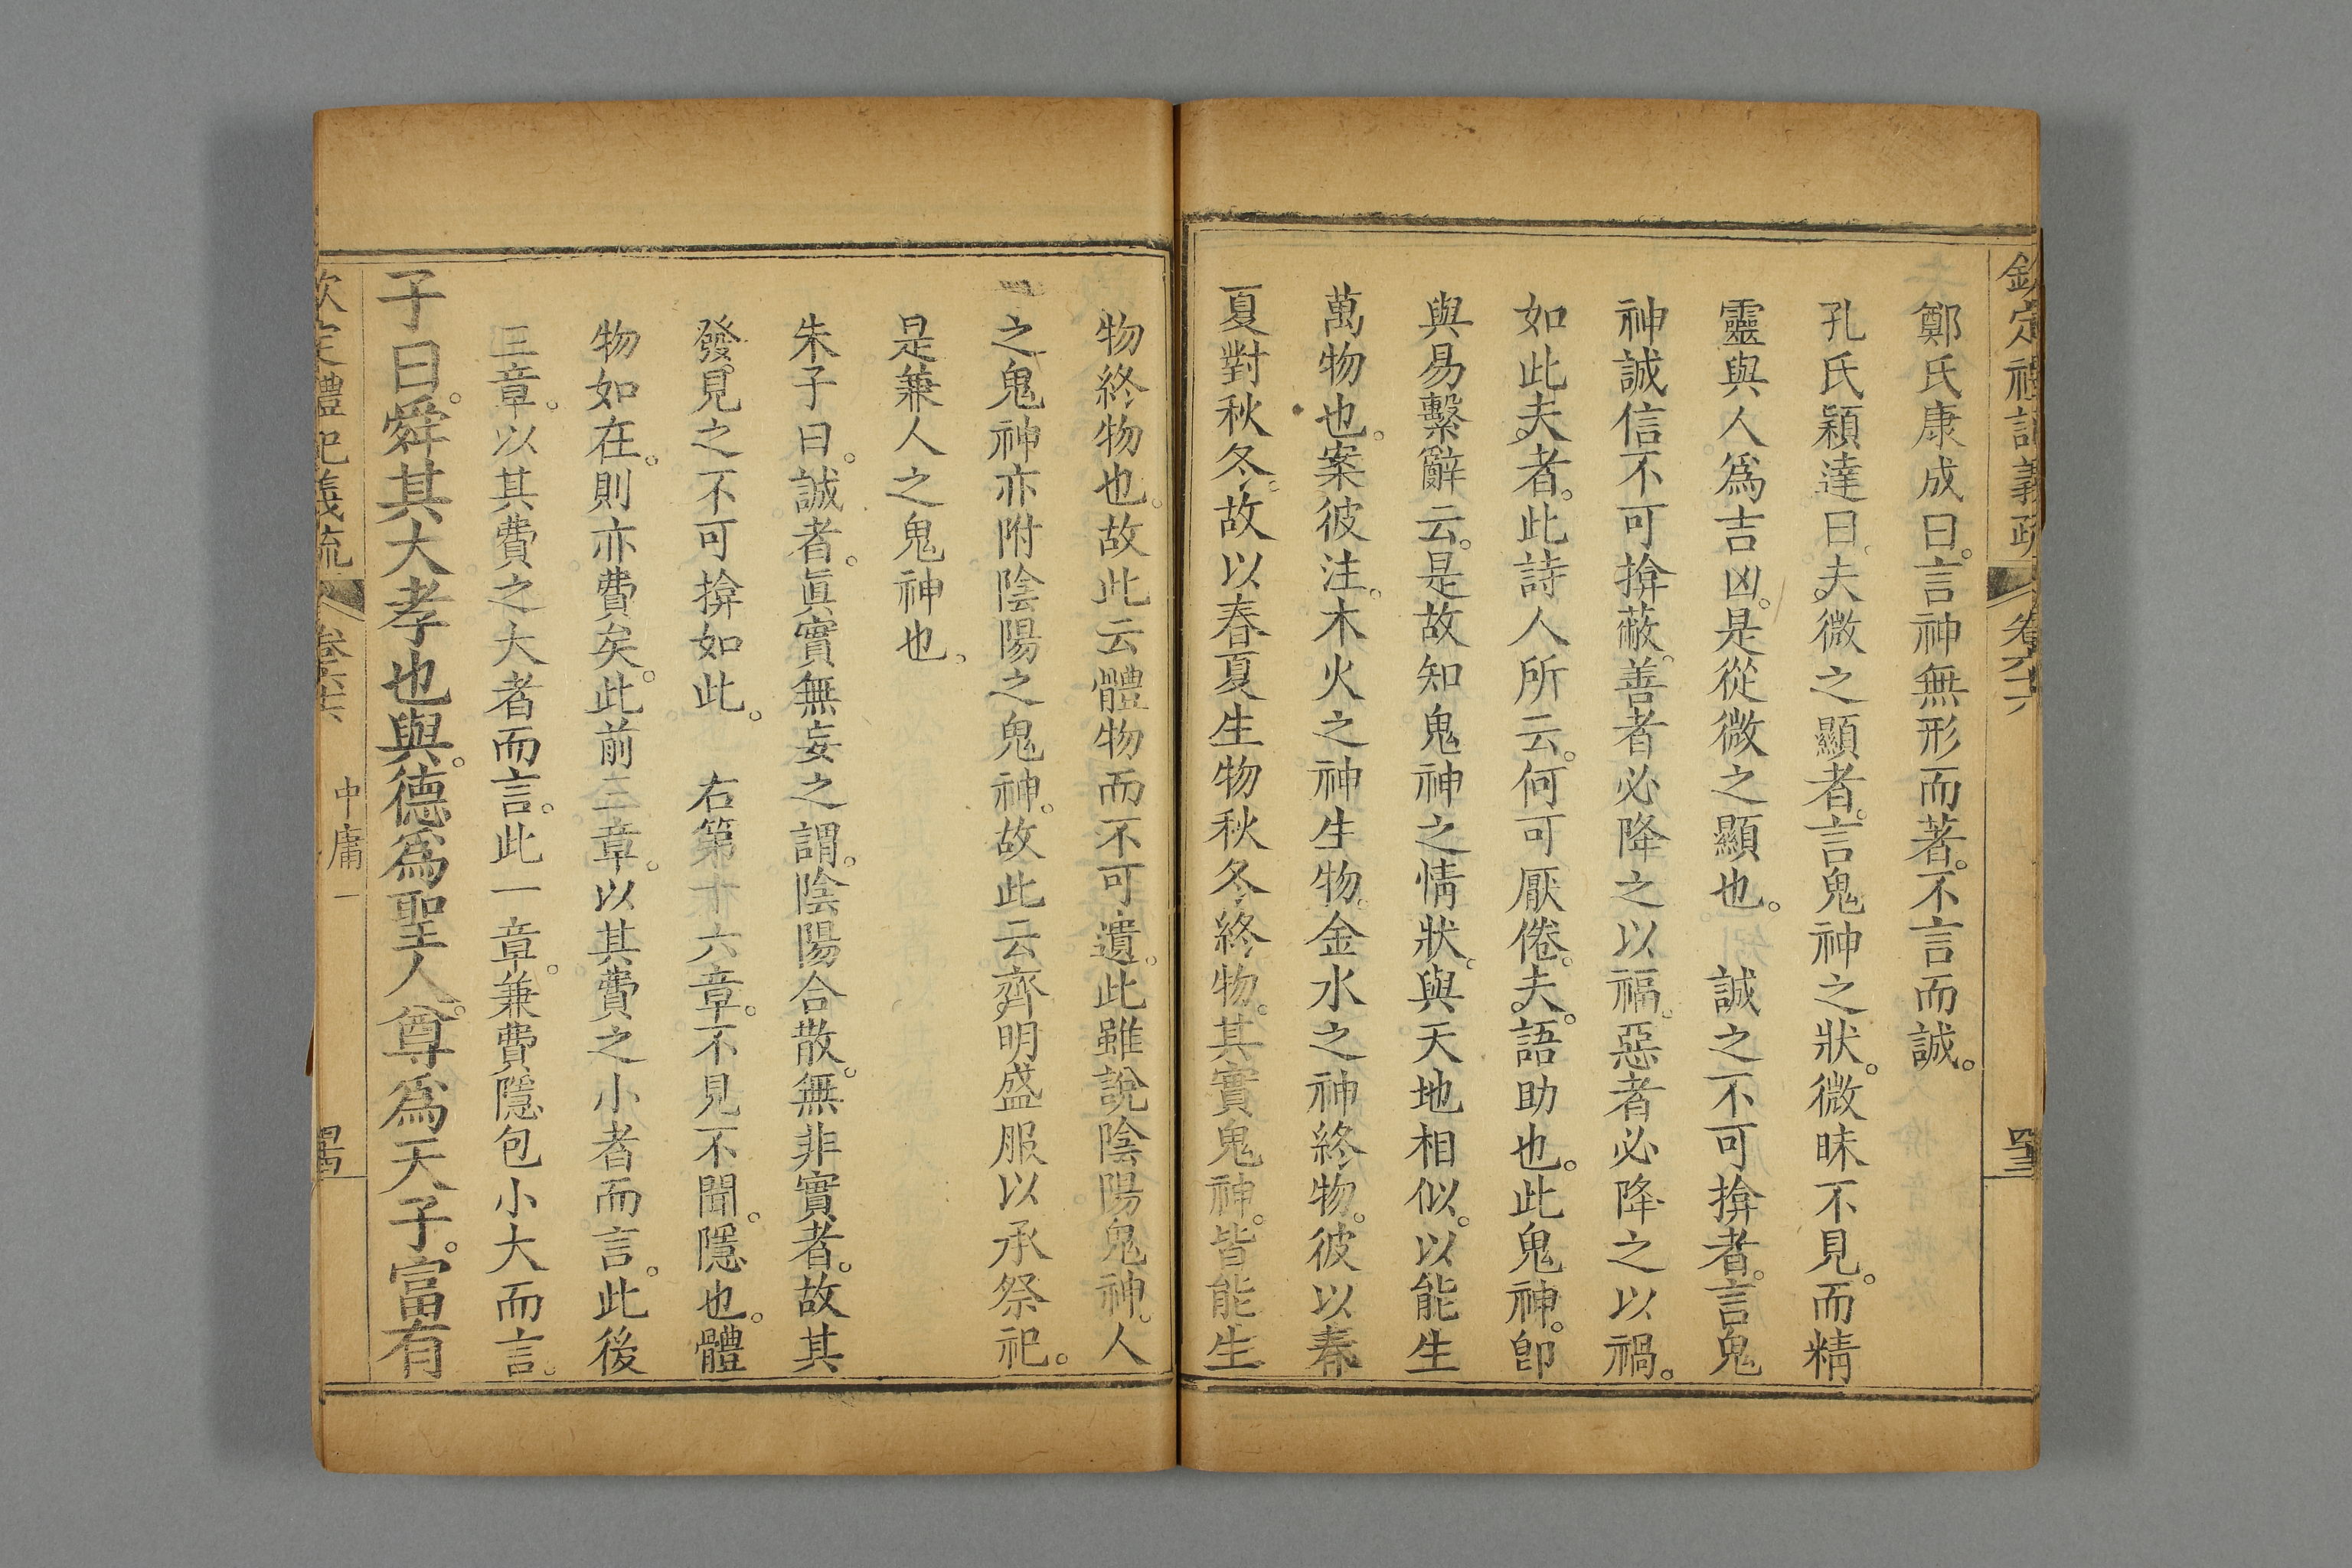 欽定禮記義疏 卷六十六 四十三
鄭氏康成曰。言神無形而著。不言而誠。
孔氏穎達曰。夫微之顯者。言鬼神之狀。微昧不見。而精
靈與人爲吉凶。是從微之顯也。 誠之不可揜者。言鬼
神誠信不可揜蔽。善者必降之以福。惡者必降之以禍。
如此夫者。此詩人所云。何可厭倦。夫。語助也。此鬼神。卽
與易繫辭云。是故知鬼神之情狀。與天地相似。以能生
萬物也。案彼注。木火之神生物。金水之神終物。彼以春
夏對秋冬。故以春夏生物秋冬終物。其實鬼神。皆能生
物終物也。故此云體物而不可遺。此雖說陰陽鬼神。人
之鬼神亦附陰陽之鬼神。故此云齊明盛服以承祭祀。
是兼人之鬼神也。
朱子曰。誠者。眞實無妄之謂。陰陽合散。無非實者。故其
發見之不可揜如此。 右第十六章。不見不聞。隱也。體
物如在。則亦費矣。此前三章。以其費之小者而言。此後
三章。以其費之大者而言。此一章。兼費隱包小大而言。
子曰。舜其大孝也與。德爲聖人。尊爲天子。富有
欽定禮記義疏 卷六十六 中庸一